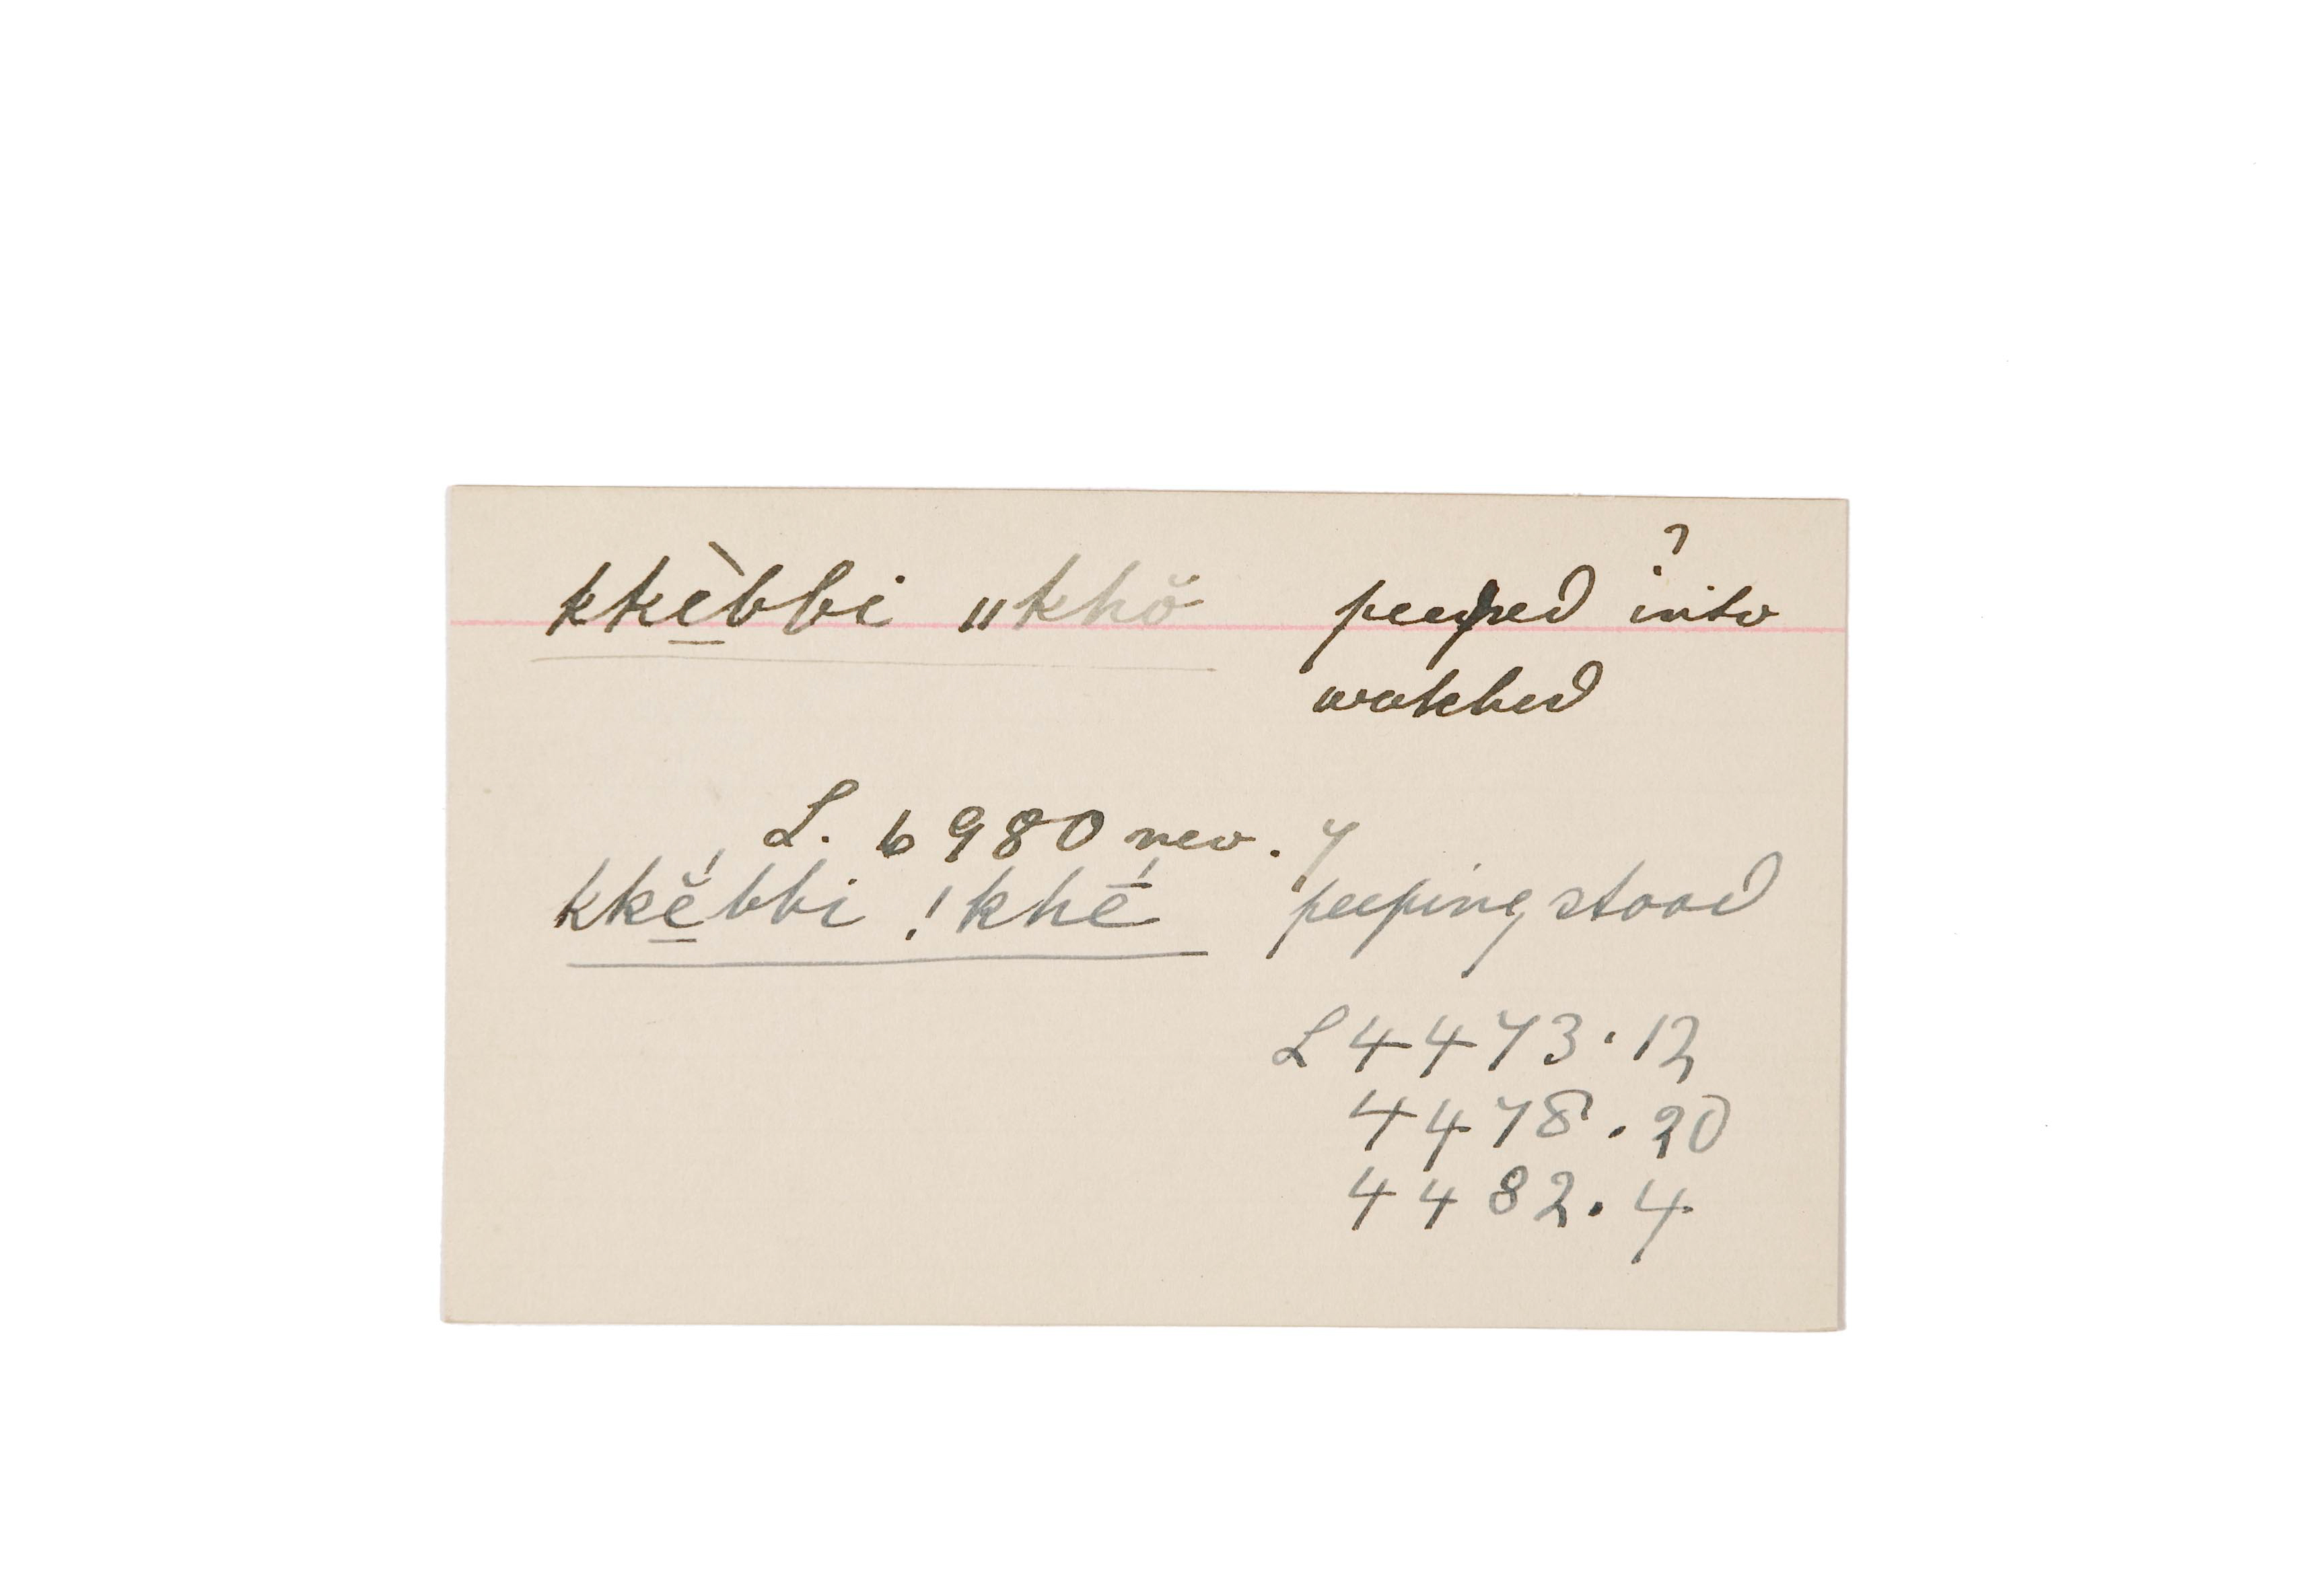 ?
kkè̱bbi ǁkhŏ peeped into
watched
L. 6980 rev. 7
kkĕ̱́bbi !khḗ peeping stood
L 4473.12
4478.20
4482.4